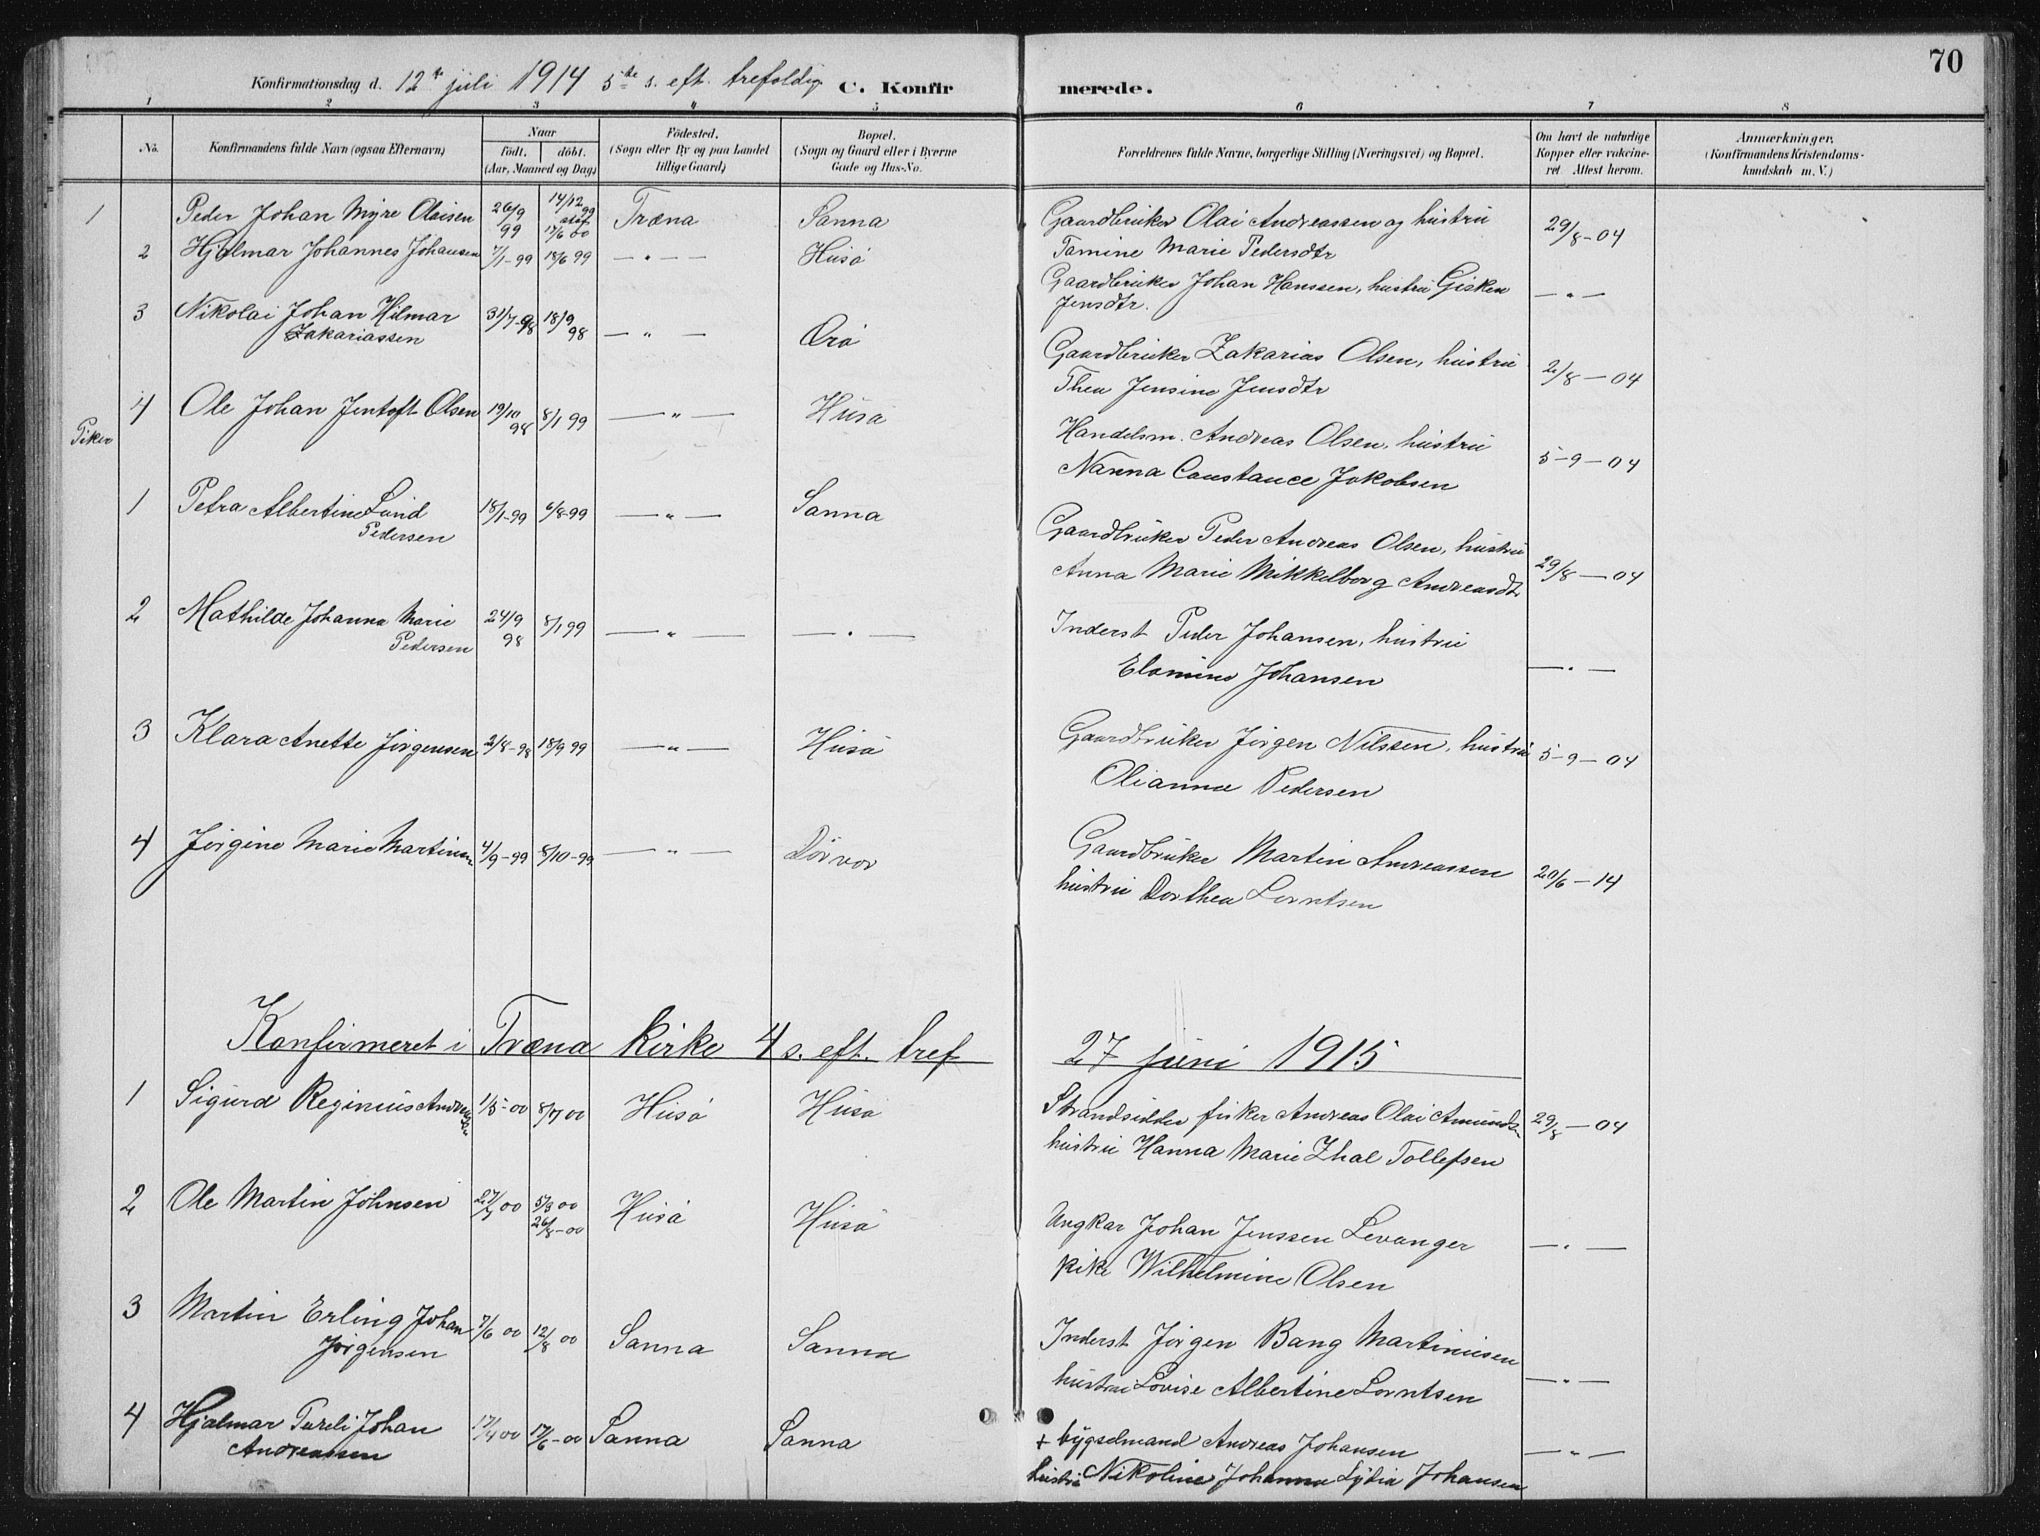 70
Konfirmationsdag d. 12te juli 1914 5te s. eft. trefoldig. C. Konfirmerede.
1 2 3 4 5 6 7 8
No.
Konfirmandens fulde Navn (ogsaa Efternavn)
Naar
født. døbt.
(Aar, Maaned og Dag)
Fødested.
(Sogn eller By og paa Landet
tillige Gaard)
Bopæl.
(Sogn og Gaard eller i Byerne
Gade og Hus-No.
Forældrenes fulde Navne, borgerlige Stilling (Næringsvei) og Bopæl.
Om havt de naturlige
Kopper eller vakcine-
ret. Attest herom.
Anmærkninger.
(Konfirmandens Kristendoms-
kundskab m. V.)
1 Peder Johan Myre Olaisen 26/9 99 14/12 99 17/6 00 Træna Sanna Gaardbruker Olai Andreassen og hustru
Tamine Marie Pedersdtr 29/8-04
2 Hjalmar Johannes Johansen 7/1-99 18/6 99 — " — Husø Gaardbruker Johan Hanssen, hustru Gisken
Jensdtr. — " —
3 Nikolai Johan Hilmar
Zakariassen 31/7-98 18/9 98 — " — Ørø Gaardbruker Zakarias Olsen, hustru
Thea Jensine Jensdtr 2/8 — 04
4 Ole Johan Jentoft Olsen 19/10 98 8/1 99 — " — Husø Handelsm. Andreas Olsen, hustru
Nanna Constance Jakobsen 5-9-04
Piker
1 Petra Albertine Lund
Pedersen 18/1-99 6/8-99 — " — Sanna Gaardbruker Peder Andreas Olsen, hustru
Anna Marie Mikkelborg Andreasdtr 29/8 — 04
2 Mathilde Johanna Marie
Pedersen 24/9 98 8/1 99 — " — — " — Inderst Peder Johansen, hustru
Elamine Johansen — " —
3 Klara Anette Jørgensen 2/8-98 18/9 99 — " — Husø Gaardbruker Jørgen Nilssen, hustru
Olianna Pedersen 5-9-04
4 Jørgine Marie Martinsen 4/9-99 8/10-99 — " — Dørvær Gaardbruker Martin Andreassen
hustru Dorthea Lorntsen 20/6-14
Konfirmeret i Træna kirke 4 s. eft. tref 27 juni 1915
1 Sigurd Reginius Andreassen 1/5-00 8/7 00 Husø Husø Strandsidder fisker Andreas Olai Amundsen
hustru Hanna Marie Zhal Tollefsen 29/8 — 04
2 Ole Martin Johnsen 00 5/8 00 26/8-00 Husø Husø Ungkar Johan Jenssen Levanger
pike Wilhelmine Olsen — " —
3 Martin Erling Johan
Jørgensen 7/6 00 12/8 00 Sanna Sanna Inderst Jørgen Bang Martinusen
hustru Lovise Albertine Lorntsen — " —
4 Hjalmar Pareli Johan
Andreassen 17/4 00 17/6-00 Sanna Sanna + bygselmand Andreas Johansen
hustru Nikoline Johanna Lydia Johansen — " —